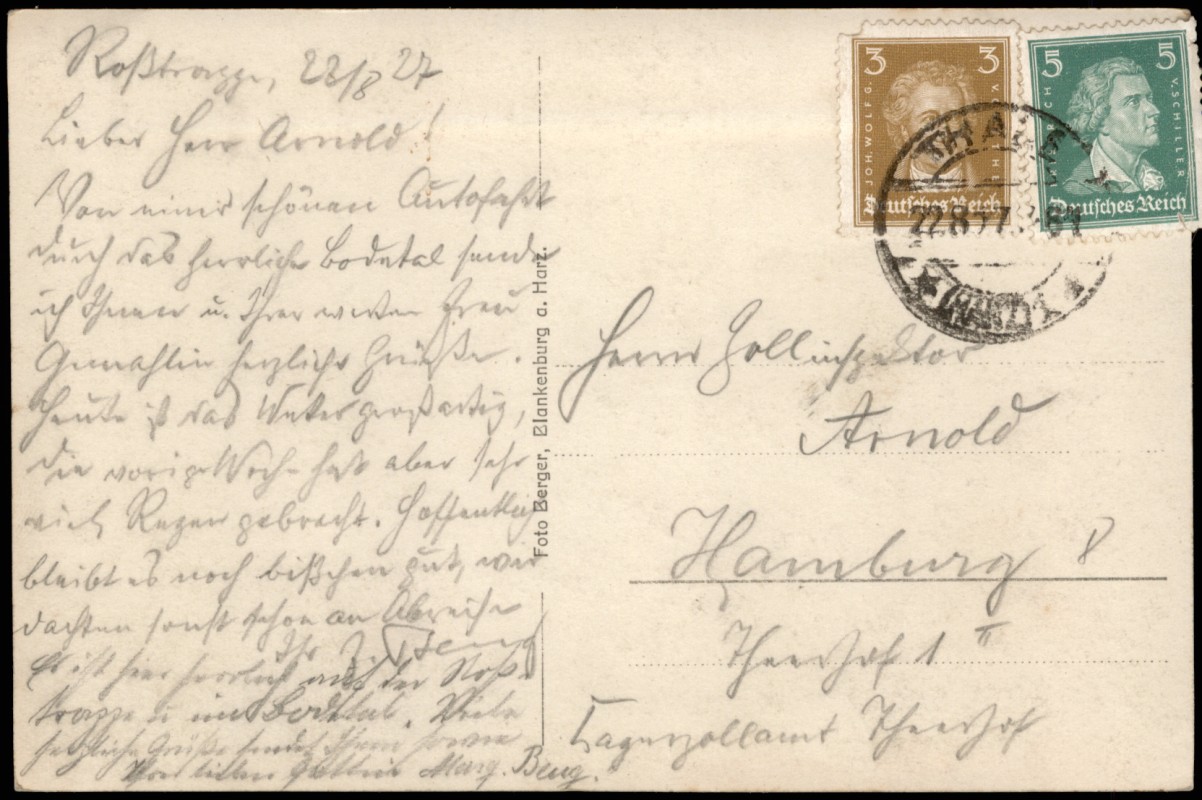 Roßtrappe, 22/8 27
Lieber Herr Arnold!
Von einer schönen Autofahrt
durch das herrliche Bodetal sende
ich Ihnen u. Ihrer werten Frau
Gemahlin herzliche Grüße.
Heute ist das Wetter großartig,
die vorige Woche hat aber sehr
viel Regen gebracht. Hoffentlich
bleibt es noch bißchen gut, wir
dachten sonst schon an Abreise
Ihr
Es ist hier herrlich auf der Roß-
trappe u. im Bodetal. Viele
herzliche Grüße sendet Ihnen sowie
Ihrer lieben Gattin Marg. Beug.
Foto Berger, Blankenburg a. Harz.
3 3
JOH. WOLFG.
Deutsches Reich
5 5
V. SCHILLER
Deutsches Reich
THALE
22.8.27
(HARZ)
Herrn Zollinspektor
Arnold
Hamburg 8
Theerhof 1 II
Lagerzollamt Theerhof